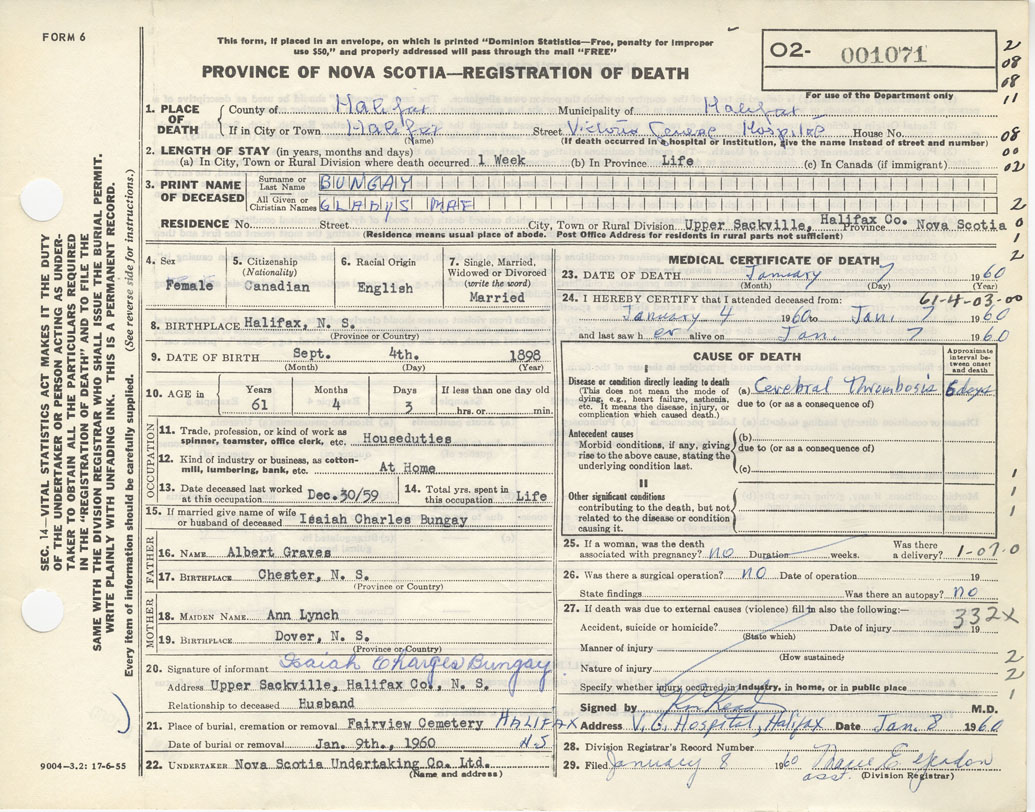 FORM 6
This form, if placed in an envelope, on which is printed "Dominion Statistics—Free, penalty for improper
use $50," and properly addressed will pass through the mail "FREE"
O2- 001071
For use of the Department only
PROVINCE OF NOVA SCOTIA—REGISTRATION OF DEATH
1. PLACE OF DEATH
County of Halifax Municipality of Halifax
If in City or Town Halifax Street Victoria General Hospital House No.
(Name) (If death occurred in a hospital or institution, give the name instead of street and number)
2. LENGTH OF STAY (in years, months and days)
(a) In City, Town or Rural Division where death occurred 1 Week (b) In Province Life (c) In Canada (if immigrant)
3. PRINT NAME OF DECEASED
Surname or Last Name BUNGAY
All Given or Christian Names GLADYS MAE
RESIDENCE No. Street City, Town or Rural Division Upper Sackville, Halifax Co. Province Nova Scotia
(Residence means usual place of abode. Post Office Address for residents in rural parts not sufficient)
4. Sex Female
5. Citizenship (Nationality) Canadian
6. Racial Origin English
7. Single, Married, Widowed or Divorced (write the word) Married
8. BIRTHPLACE Halifax, N. S.
(Province or Country)
9. DATE OF BIRTH Sept. 4th. 1898
(Month) (Day) (Year)
10. AGE in Years 61 Months 4 Days 3 If less than one day old hrs. or min.
OCCUPATION
11. Trade, profession, or kind of work as spinner, teamster, office clerk, etc. Houseduties
12. Kind of industry or business, as cotton-mill, lumbering, bank, etc. At Home
13. Date deceased last worked at this occupation Dec.30/59
14. Total yrs. spent in this occupation Life
15. If married give name of wife or husband of deceased Isaiah Charles Bungay
FATHER
16. NAME Albert Graves
17. BIRTHPLACE Chester, N. S.
(Province or Country)
MOTHER
18. MAIDEN NAME Ann Lynch
19. BIRTHPLACE Dover, N. S.
(Province or Country)
20. Signature of informant Isaiah Charles Bungay
Address Upper Sackville, Halifax Co., N. S.
Relationship to deceased Husband
21. Place of burial, cremation or removal Fairview Cemetery HALIFAX
Date of burial or removal Jan. 9th., 1960 N.S
22. UNDERTAKER Nova Scotia Undertaking Co. Ltd.
(Name and address)
MEDICAL CERTIFICATE OF DEATH
23. DATE OF DEATH January 7 1960
(Month) (Day) (Year)
24. I HEREBY CERTIFY that I attended deceased from: 61-4-03-00
January 4 1960 to Jan. 7 1960
and last saw h er alive on Jan. 7 1960
CAUSE OF DEATH
Approximate interval between onset and death
I
Disease or condition directly leading to death
(This does not mean the mode of dying, e.g., heart failure, asthenia, etc. It means the disease, injury, or complication which caused death.)
(a) Cerebral Thrombosis 6 days
due to (or as a consequence of)
Antecedent causes
Morbid conditions, if any, giving rise to the above cause, stating the underlying condition last.
(b)
due to (or as a consequence of)
(c)
II
Other significant conditions
contributing to the death, but not related to the disease or condition causing it.
25. If a woman, was the death associated with pregnancy? no Duration weeks. Was there a delivery? 1-07-0
26. Was there a surgical operation? no Date of operation 19
State findings Was there an autopsy? no
27. If death was due to external causes (violence) fill in also the following:—
332x
Accident, suicide or homicide? Date of injury 19
(State which)
Manner of injury
(How sustained)
Nature of injury
Specify whether injury occurred in industry, in home, or in public place
Signed by M.D.
Address V. G. Hospital, Halifax Date Jan. 8 1960
28. Division Registrar's Record Number
29. Filed January 8 1960
asst. (Division Registrar)
SEC. 14—VITAL STATISTICS ACT MAKES IT THE DUTY
OF THE UNDERTAKER OR PERSON ACTING AS UNDER-
TAKER TO OBTAIN ALL THE PARTICULARS REQUIRED
IN THE "REGISTRATION OF DEATH" AND TO FILE THE
SAME WITH THE DIVISION REGISTRAR WHO SHALL ISSUE THE BURIAL PERMIT.
WRITE PLAINLY WITH UNFADING INK. THIS IS A PERMANENT RECORD.
Every item of information should be carefully supplied. (See reverse side for instructions.)
9004-3.2: 17-6-55
2
08
08
11
08
00
02
2
0
1
2
1
1
1
2
2
1